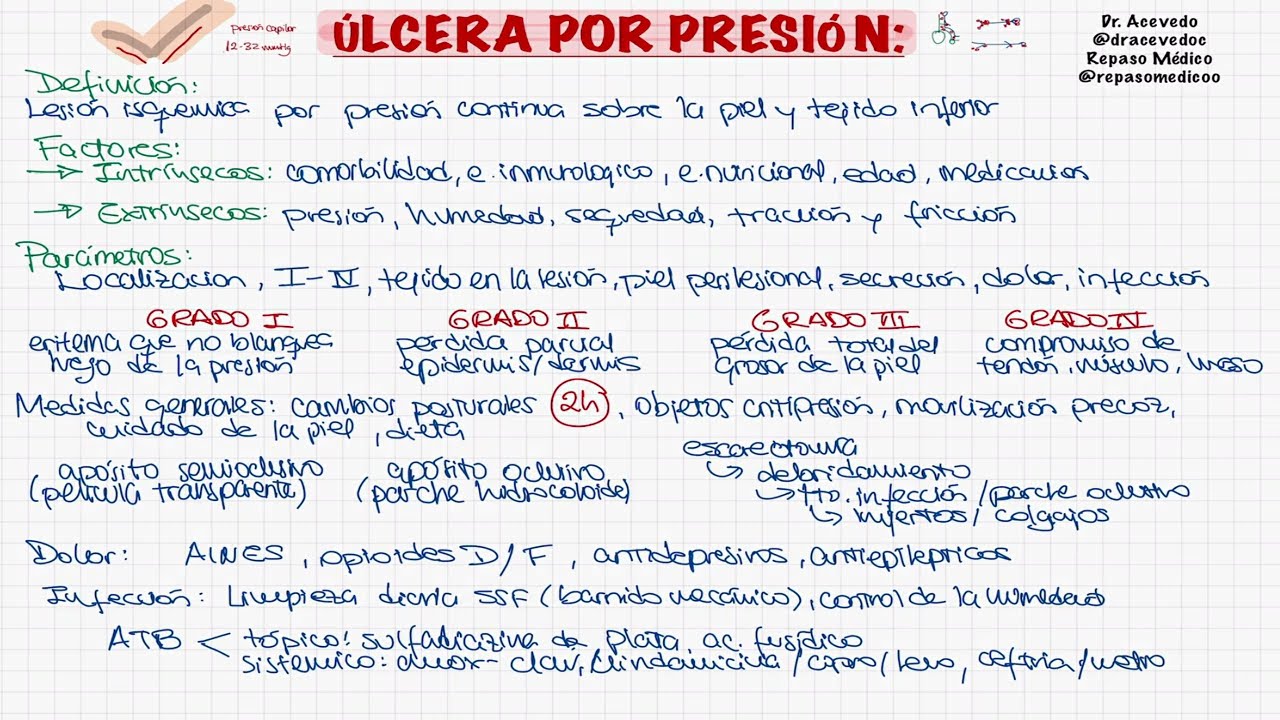 presión capilar
12-32 mmHg
ÚLCERA POR PRESIÓN:
Dr. Acevedo
@dracevedoc
Repaso Médico
@repasomedicoo
Definición:
Lesión isquemica por presión continua sobre la piel y tejido inferior
Factores:
→ Intrínsecos: comorbilidad, e. inmunologico, e. nutricional, edad, medicación
→ Extrínsecos: presión, humedad, sequedad, tracción y fricción
Parámetros:
Localización, I-IV, tejido en la lesión, piel perilesional, secreción, dolor, infección
GRADO I GRADO II GRADO III GRADO IV
eritema que no blanquea pérdida parcial pérdida total del compromiso de
luego de la presión epidermis/dermis grosor de la piel tendón, músculo, hueso
Medidas generales: cambios posturales 2h, objetos antipresión, movilización precoz,
cuidado de la piel, dieta
escarectomía
apósito semioclusivo apósito oclusivo ↳ debridamiento
(película transparente) (parche hidrocoloide) ↳ tto. infección / parche oclusivo
↳ injertos / colgajos
Dolor: AINES, opioides D/F, antidepresivos, antiepilepticos
Infección: Limpieza diaria SSF (barrido mecánico), control de la humedad
ATB < tópico: sulfadiazina de plata, ac. fusídico
sistémico: amox-clav, clindamicina / cipro / levo, ceftria/metro